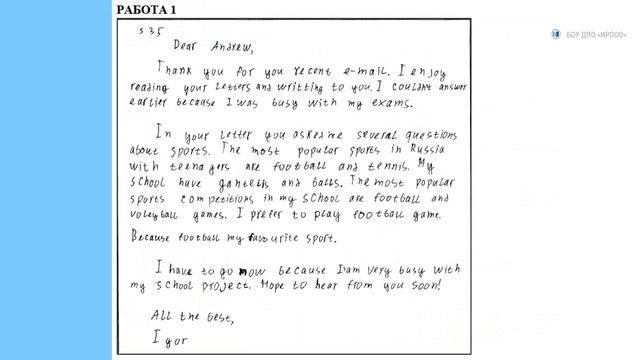 РАБОТА 1
БОУ ДПО «ИРООО»
s 35
Dear Andrew,
Thank you for you recent e-mail. I enjoy
reading your letters and writting to you. I couldnt answer
earlier because I was busy with my exams.
In your letter you asked me several questions
about sports. The most popular sports in Russia
with teenagers are football and tennis. My
school have gantelis and balls. The most popular
sports competitions in my school are football and
volleyball games. I prefer to play football game.
Because football my favourite sport.
I have to go now because I am very busy with
my school project. Hope to hear from you soon!
All the best,
Igor